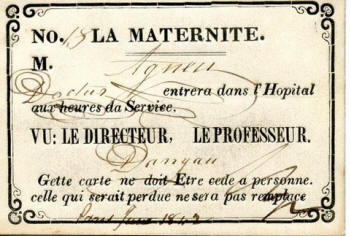 No. 13 LA MATERNITE.
M. Agnew
Doctor entrera dans l'Hopital
aux heures da Service.
VU: LE DIRECTEUR, LE PROFESSEUR.
Dangau
Gette carte ne doit Etre cede a personne.
celle qui serait perdue ne sera pas remplace
Paris June 1842